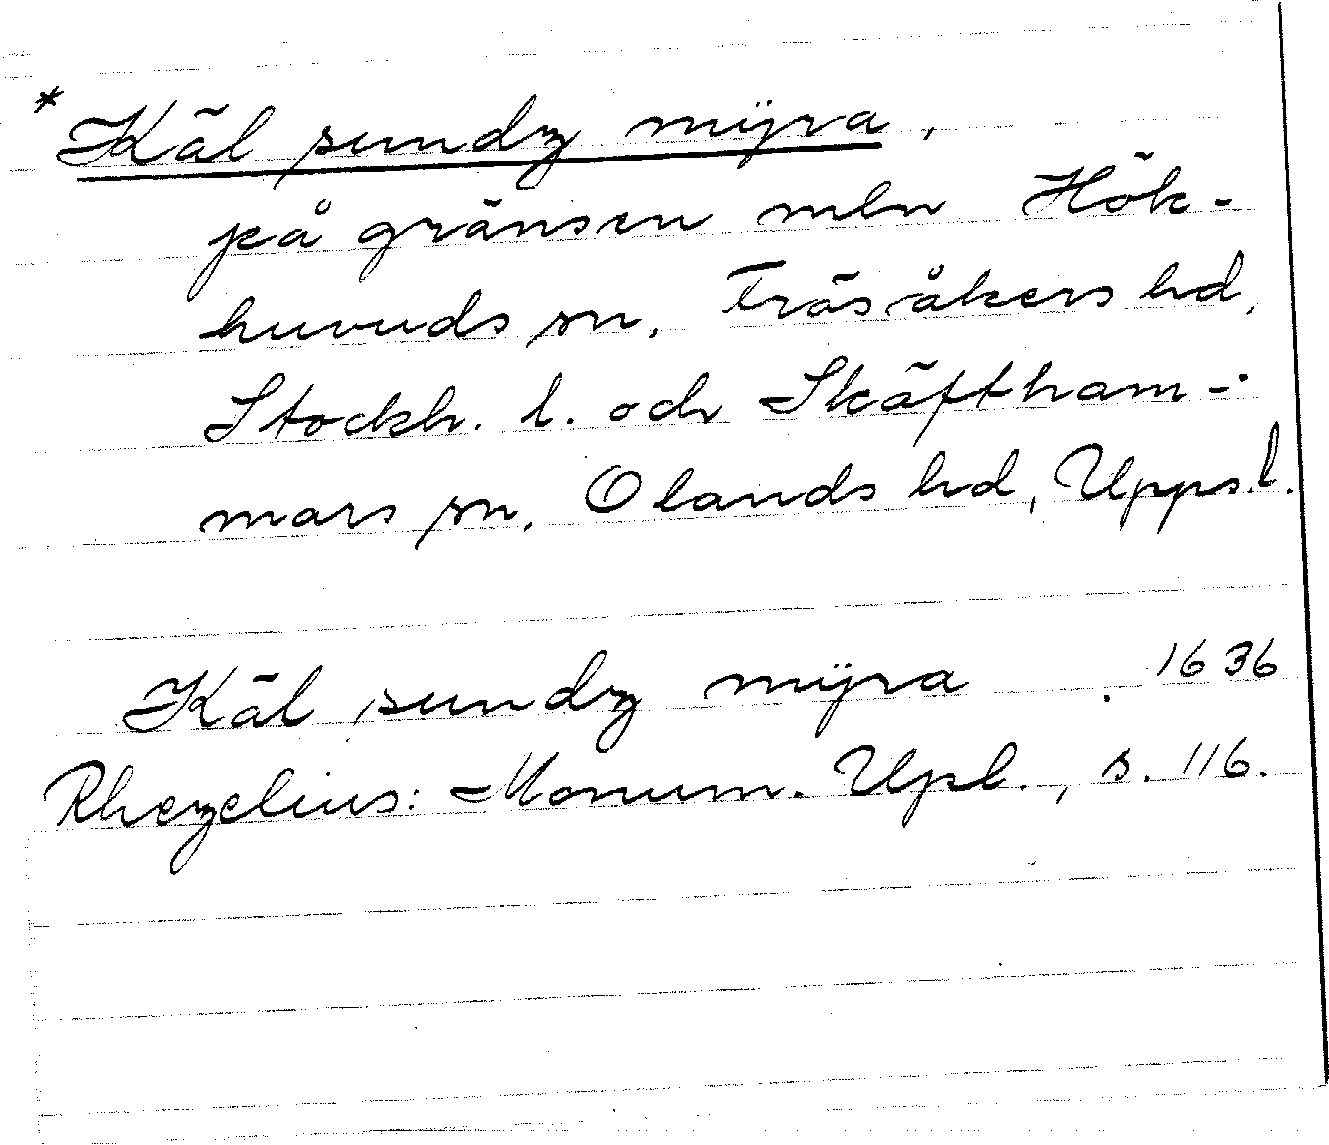 *Käl sundz mÿra,
på gränsen mln Hök-
huvuds sn, Frösåkers hd,
Stockh. l. och Skäftham-
mars sn, Olands hd, Upps.l.
Käl sundz mÿra 1636
Rhezelius: Monum. Upl., s. 116.